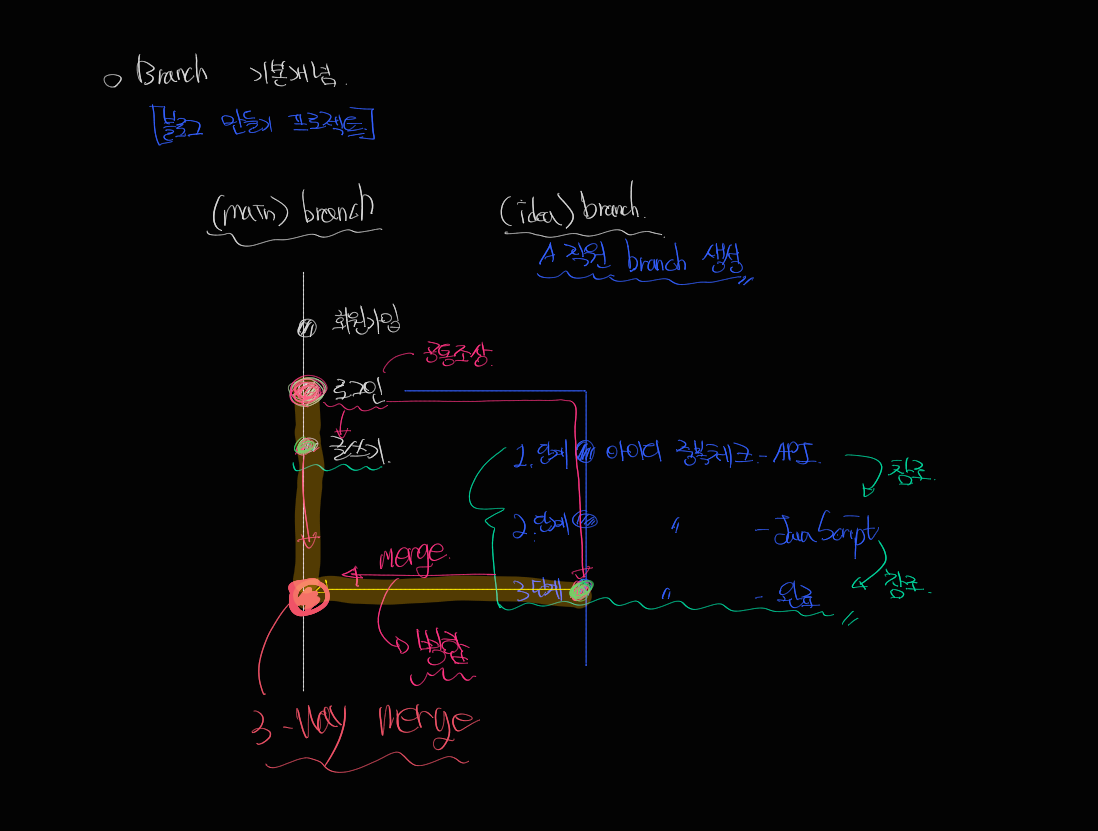 Branch 기본개념.
[블로그 만들기 프로젝트]
(main) branch
(idea) branch.
A직원 branch 생성
회원가입
공통조상.
로그인
글쓰기.
1.단계 아이디 중복체크 - API.
참조.
2.단계 〃 - JavaScript
merge.
3단계 〃 - 완료
참조.
병합
3-way merge